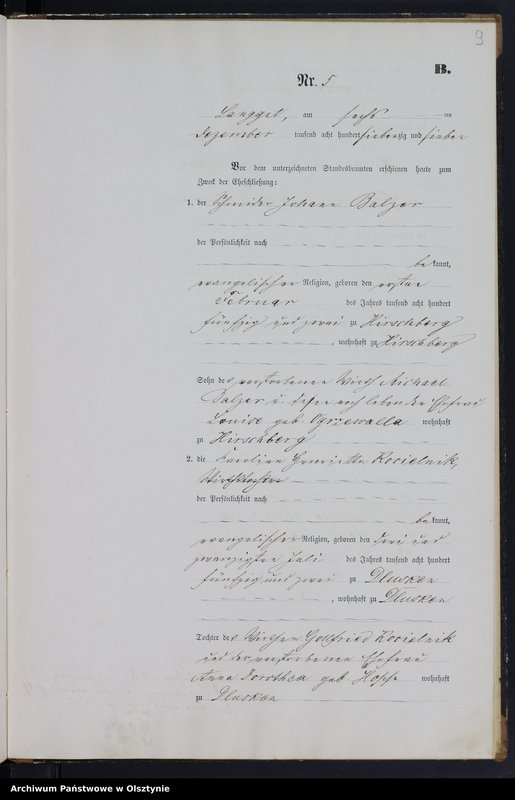 9
B.
Nr. 5
Langgut, am sechs ten
Dezember tausend acht hundert siebenzig und sieben
Vor dem unterzeichneten Standesbeamten erschienen heute zum
Zweck der Eheschließung:
1. der Schneider Johann Balzer
der Persönlichkeit nach
bekannt,
evangelischer Religion, geboren den ersten
Februar des Jahres tausend acht hundert
fünfzig und zwei zu Hirschberg
, wohnhaft zu Hirschberg
Sohn des verstorbenen Wirth Michael
Balzer u. dessen noch lebenden Ehefrau
Louise geb. Ogrzewalla wohnhaft
zu Hirschberg
2. die Karoline Henriette Kosielnik,
Wirthstochter
der Persönlichkeit nach
bekannt,
evangelischer Religion, geboren den drei und
zwanzigsten Juli des Jahres tausend acht hundert
fünfzig und zwei zu Dlusken
, wohnhaft zu Dlusken
Tochter des Wirthen Gottfried Kosielnik
und der verstorbenen Ehefrau
Anna Dorothea geb. wohnhaft
zu Dlusken
Archiwum Państwowe w Olsztynie